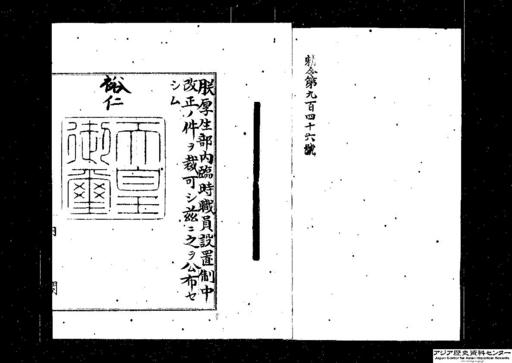 勅令第九百四十六號
朕厚生部內臨時職員設置制中
改正ノ件ヲ裁可シ茲ニ之ヲ公布セ
シム
裕仁
天皇
御璽
アジア歴史資料センター
Japan Center for Asian Historical Records